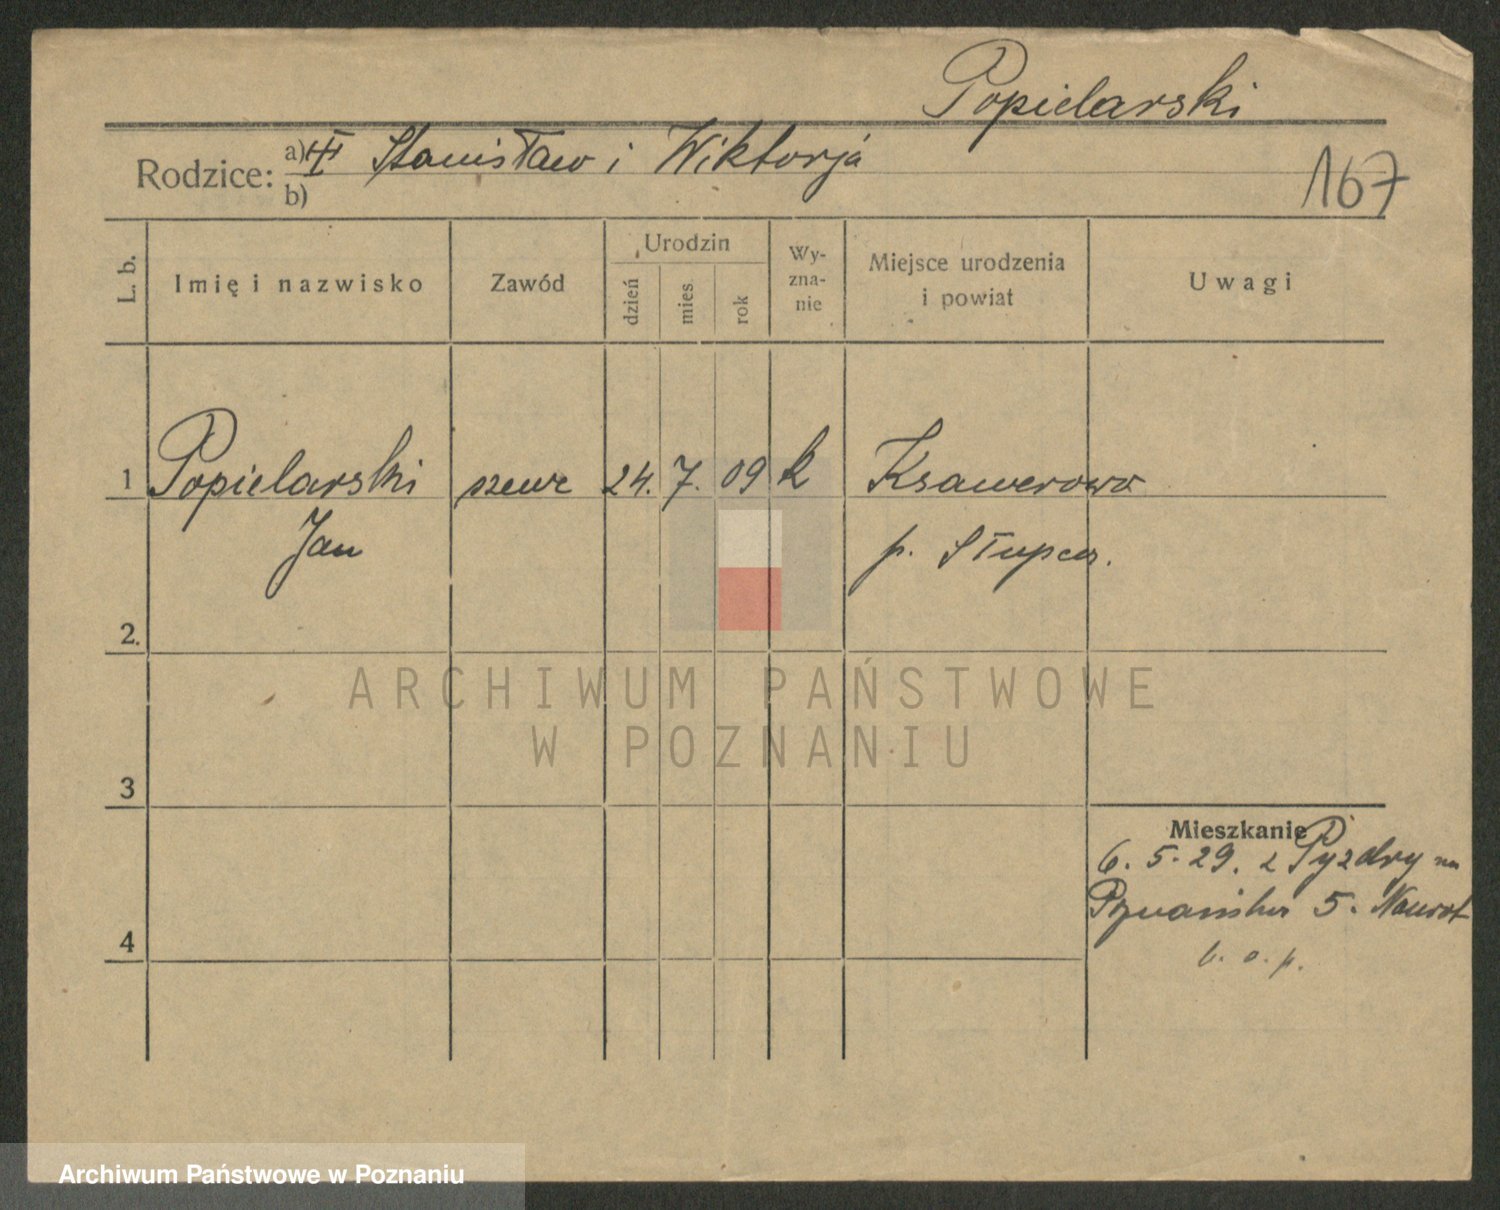 Popielarski
Rodzice: a) Stanisław i Wiktorja
b)
167
L. b.
Imię i nazwisko
Zawód
Urodzin
dzień
mies
rok
Wy-
zna-
nie
Miejsce urodzenia
i powiat
Uwagi
1 Popielarski szewc 24. 7. 09 k Ksawerowo
Jan p. Słupca.
2.
3
4
Mieszkanie
6. 5. 29. z Pyzdry na
5. Nawrot
b. o. p.
ARCHIWUM PAŃSTWOWE
W POZNANIU
Archiwum Państwowe w Poznaniu